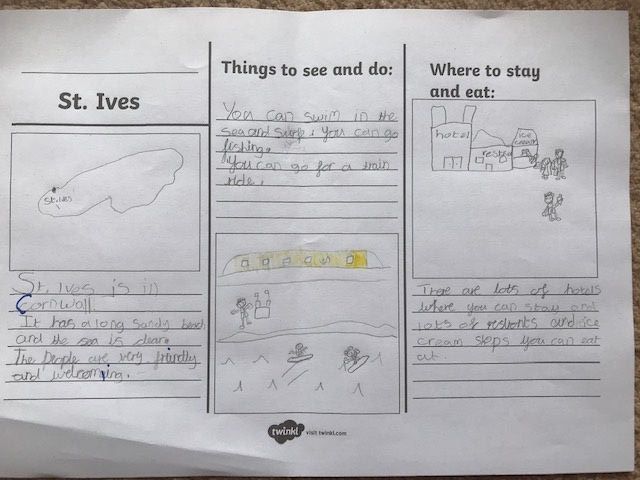 St. Ives
St.Ives
St. Ives is in
Cornwall.
It has a long sandy beach
and the sea is clear.
The people are very friendly
and welcoming.
Things to see and do:
You can swim in the
sea and surf. You can go
fishing.
You can go for a train
ride.
twinkl visit twinkl.com
Where to stay
and eat:
hotel
ice
cream
There are lots of hotels
where you can stay and
lots of restronts and ice
cream shops you can eat
at.